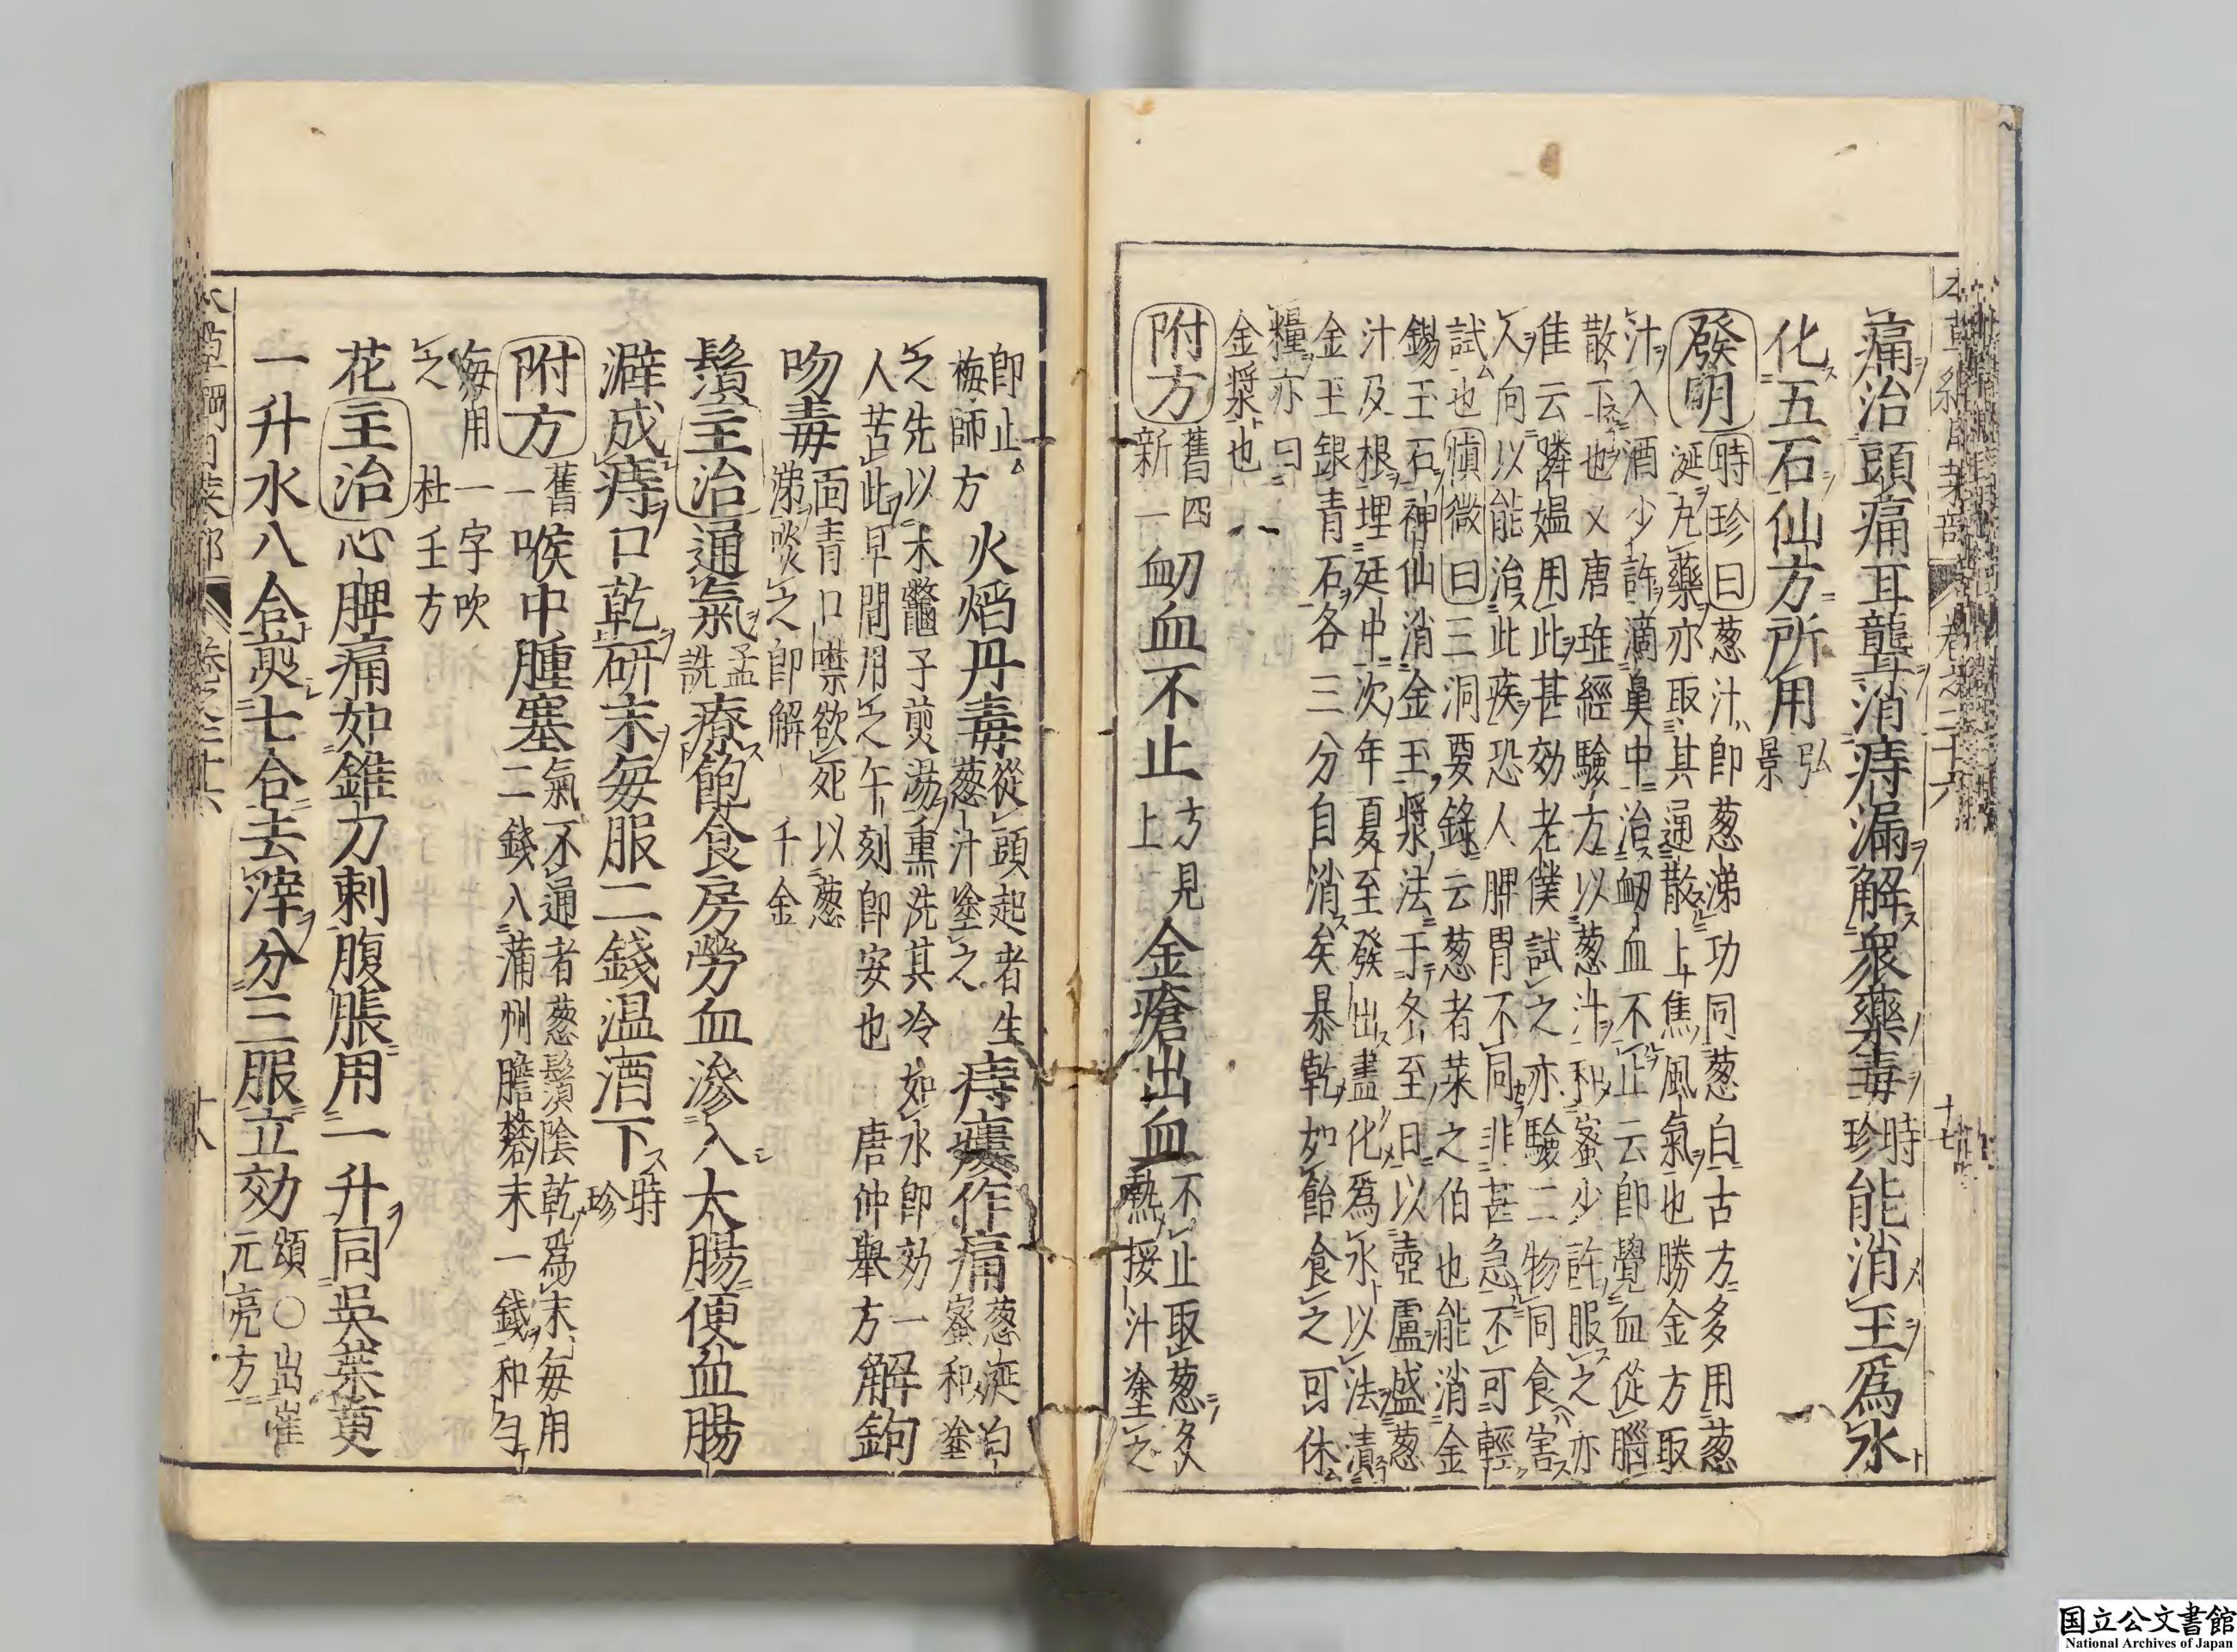 痛治頭痛耳聾消痔漏解衆藥毒時珍能消玉爲水
化五石仙方所用弘景
發明時珍曰葱汁即葱涕功同葱白古方多用葱
涎丸藥亦取其通散上焦風氣也勝金方取
汁入酒少許滴鼻中治衂血不止云即覺血從腦
散下也又唐瑶經驗方以葱汁和蜜少許服之亦
佳云隣媼用此甚効老僕試之亦驗二物同食害
人何以能治此疾恐人脾胃不同非甚急不可輕
試也愼微曰三洞要錄云葱者菜之伯也能消金
錫玉石神仙消金玉漿法于冬至日以壺盧盛葱
汁及根埋庭中次年夏至發出盡化爲水以法漬
金玉銀青石各三分自消矣暴乾如飴食之可休
糧亦曰
金漿也
附方舊四新一衂血不止方見上金瘡出血不止取葱炙熱挼汁塗之
即止梅師方火熖丹毒從頭起者生葱汁塗之痔瘻作痛葱涎白蜜和塗
之先以木鱉子煎湯熏洗其冷如水即効一
人苦此早間用之午刻即安也唐仲舉方解鉤
吻毒面青口噤欲死以葱涕啖之即解千金
鬚主治通氣孟詵療飽食房勞血滲入大腸便血腸
澼成痔口乾研末毎服二錢温酒下時珍
附方舊一喉中腫塞氣不通者葱鬚陰乾爲末毎用二錢入蒲州膽礬末一錢和勻
毎用一字吹
之杜壬方
花主治心脾痛如錐刀刺腹脹用一升同吳茱萸
一升水八合煎七合去滓分三服立効頌○出崔元亮方
本草綱目菜部 卷之二十六 十七
本草綱目菜部 卷之二十六 十八
国立公文書館
National Archives of Japan